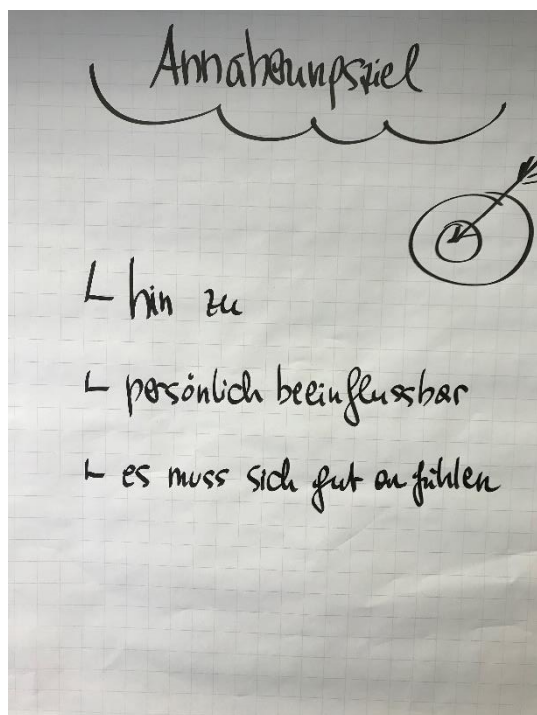 Annäherungsziel
hin zu
persönlich beeinflussbar
es muss sich gut anfühlen